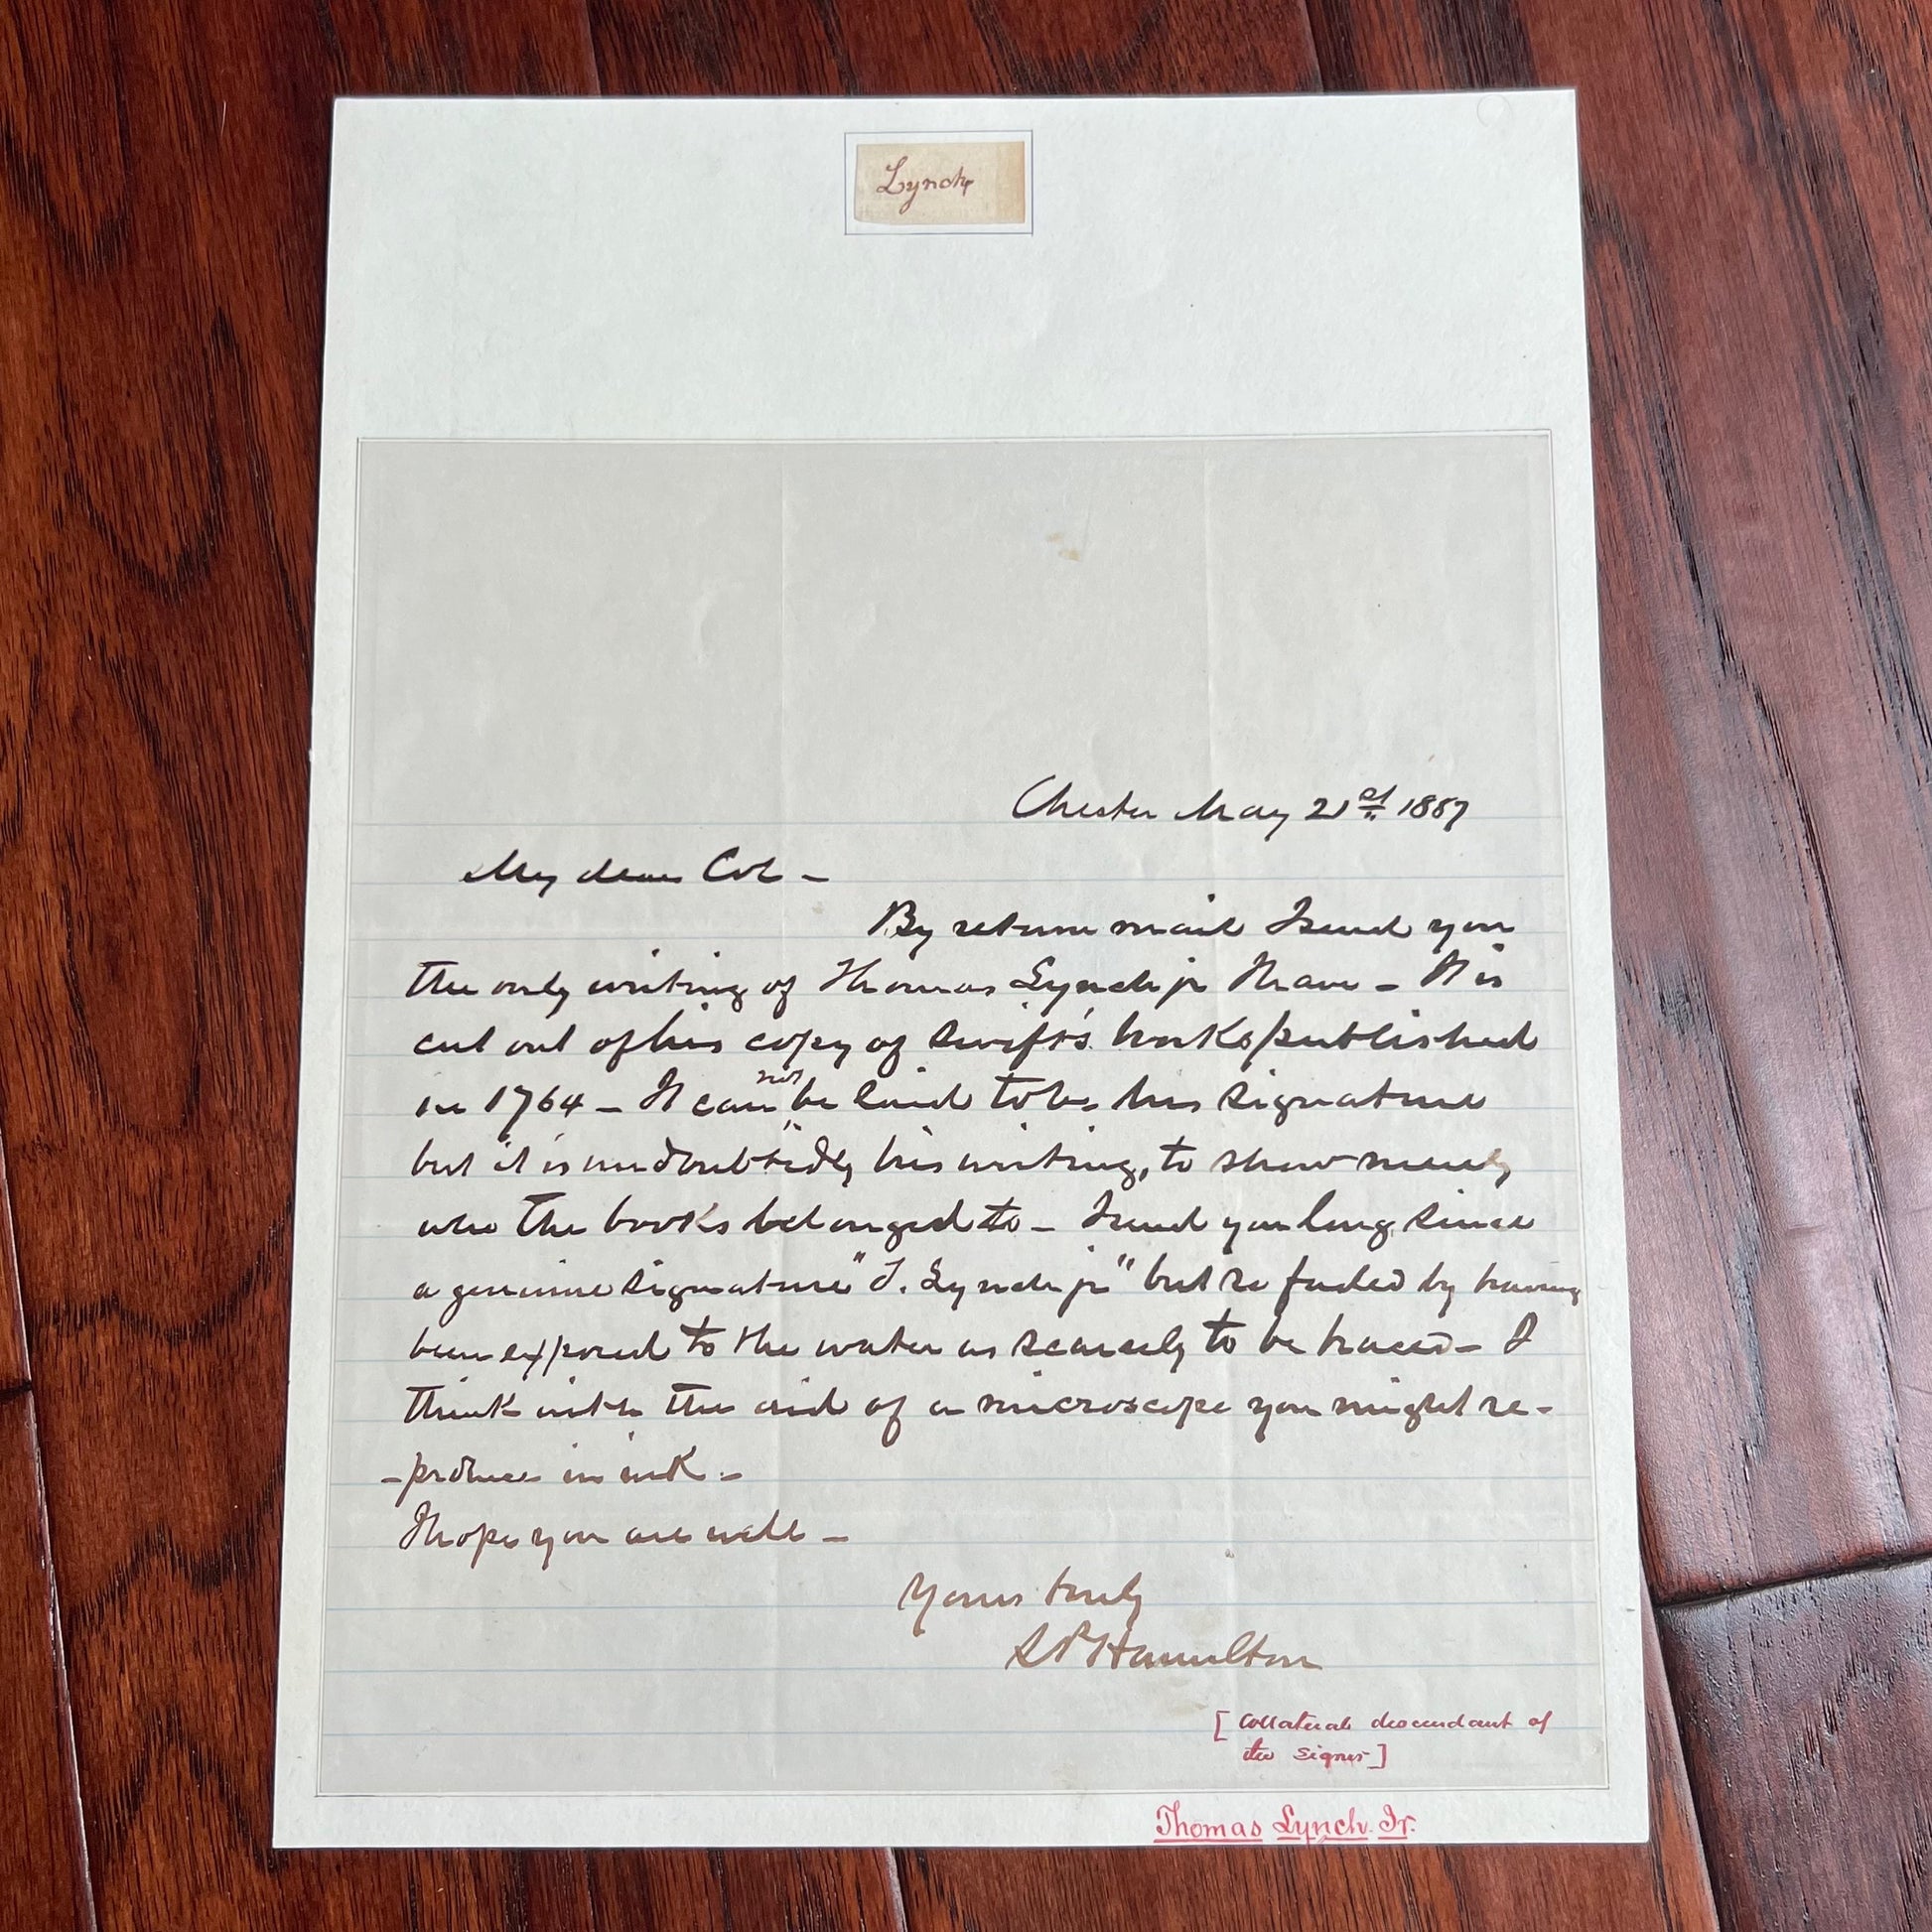 Lynch
Chester May 21st 1887
My dear Col -
By return mail I send you
the only writing of Thomas Lynch jr I have - It is
cut out of his copy of Swift's works published
in 1764 - It can not be said to be his signature
but it is undoubtedly his writing, to show merely
who the books belonged to - I send you long since
a genuine signature "T. Lynch jr" but so faded by having
been exposed to the water as scarcely to be traced - I
think with the aid of a microscope you might re-
-produce in ink -
I hope you are well -
Yours truly
S P Hamilton
[ Collateral descendant of
the Signer ]
Thomas Lynch Jr.